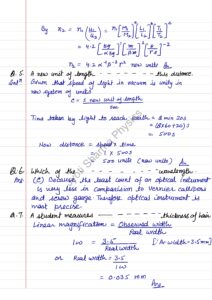 By n₂ = n₁ [u₁/u₂] = n₁ [M₁/M₂]¹ [L₁/L₂]² [T₁/T₂]⁻²
= 4.2 [kg/αkg]¹ [m/βm]² [s/γs]⁻²
n₂ = 4.2 α⁻¹ β⁻² γ² new units Ans
Q.5. A new unit of length - - - - - - - - this distance.
Solⁿ Given that speed of light in vacuum is unity in
new system of units
c = 1 new unit of length / sec
Time taken by light to reach Earth = 8 min 20s
= (8x60+20)s
= 500s
Now distance = speed x time
= 1 x 500s
500 units (new units) Ans
Q.6. Which of the - - - - - - - - wavelength
Ans (c) Because the least count of an optical instrument
is very less in comparison to vernier callipers
and screw gauge. Therefore optical instrument is
most precise.
Q.7. A student measures - - - - - - - thickness of hair
Linear magnification = Observed width / Real width
100 = 3.5 / Real width [Av width = 3.5mm]
or Real width = 3.5 / 100
= 0.035 mm
Ans